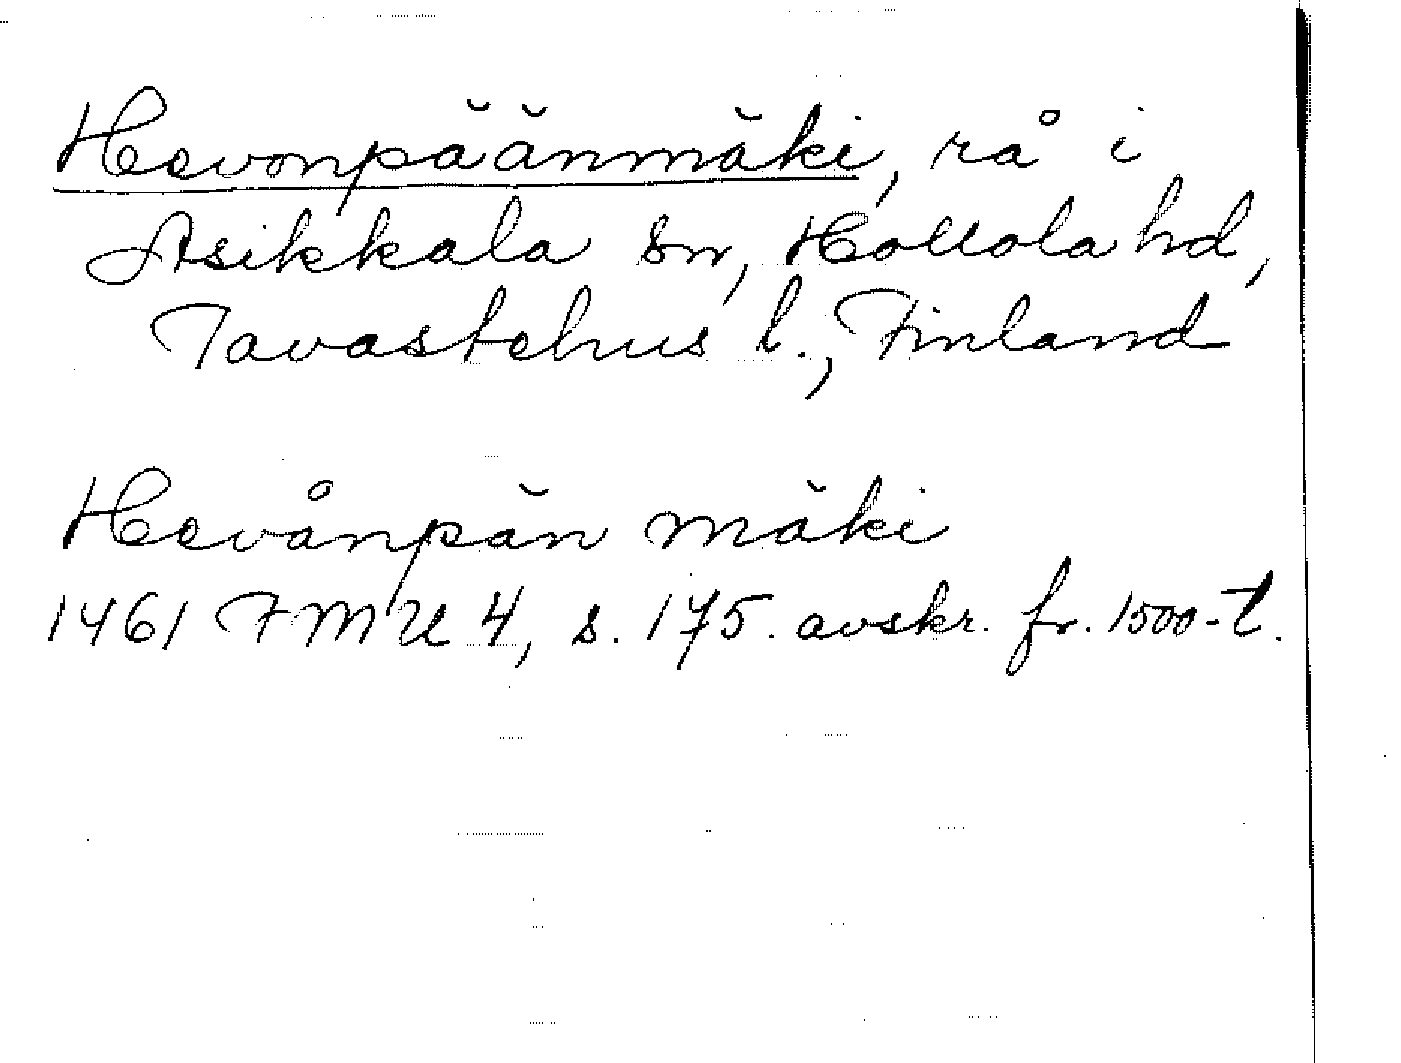 Hevonpäänmäki, rå i
Asikkala sn, Hollola hd,
Tavastehus l., Finland
Hevånpän mäki
1461 FMU 4, s. 175. avskr. fr. 1500-t.